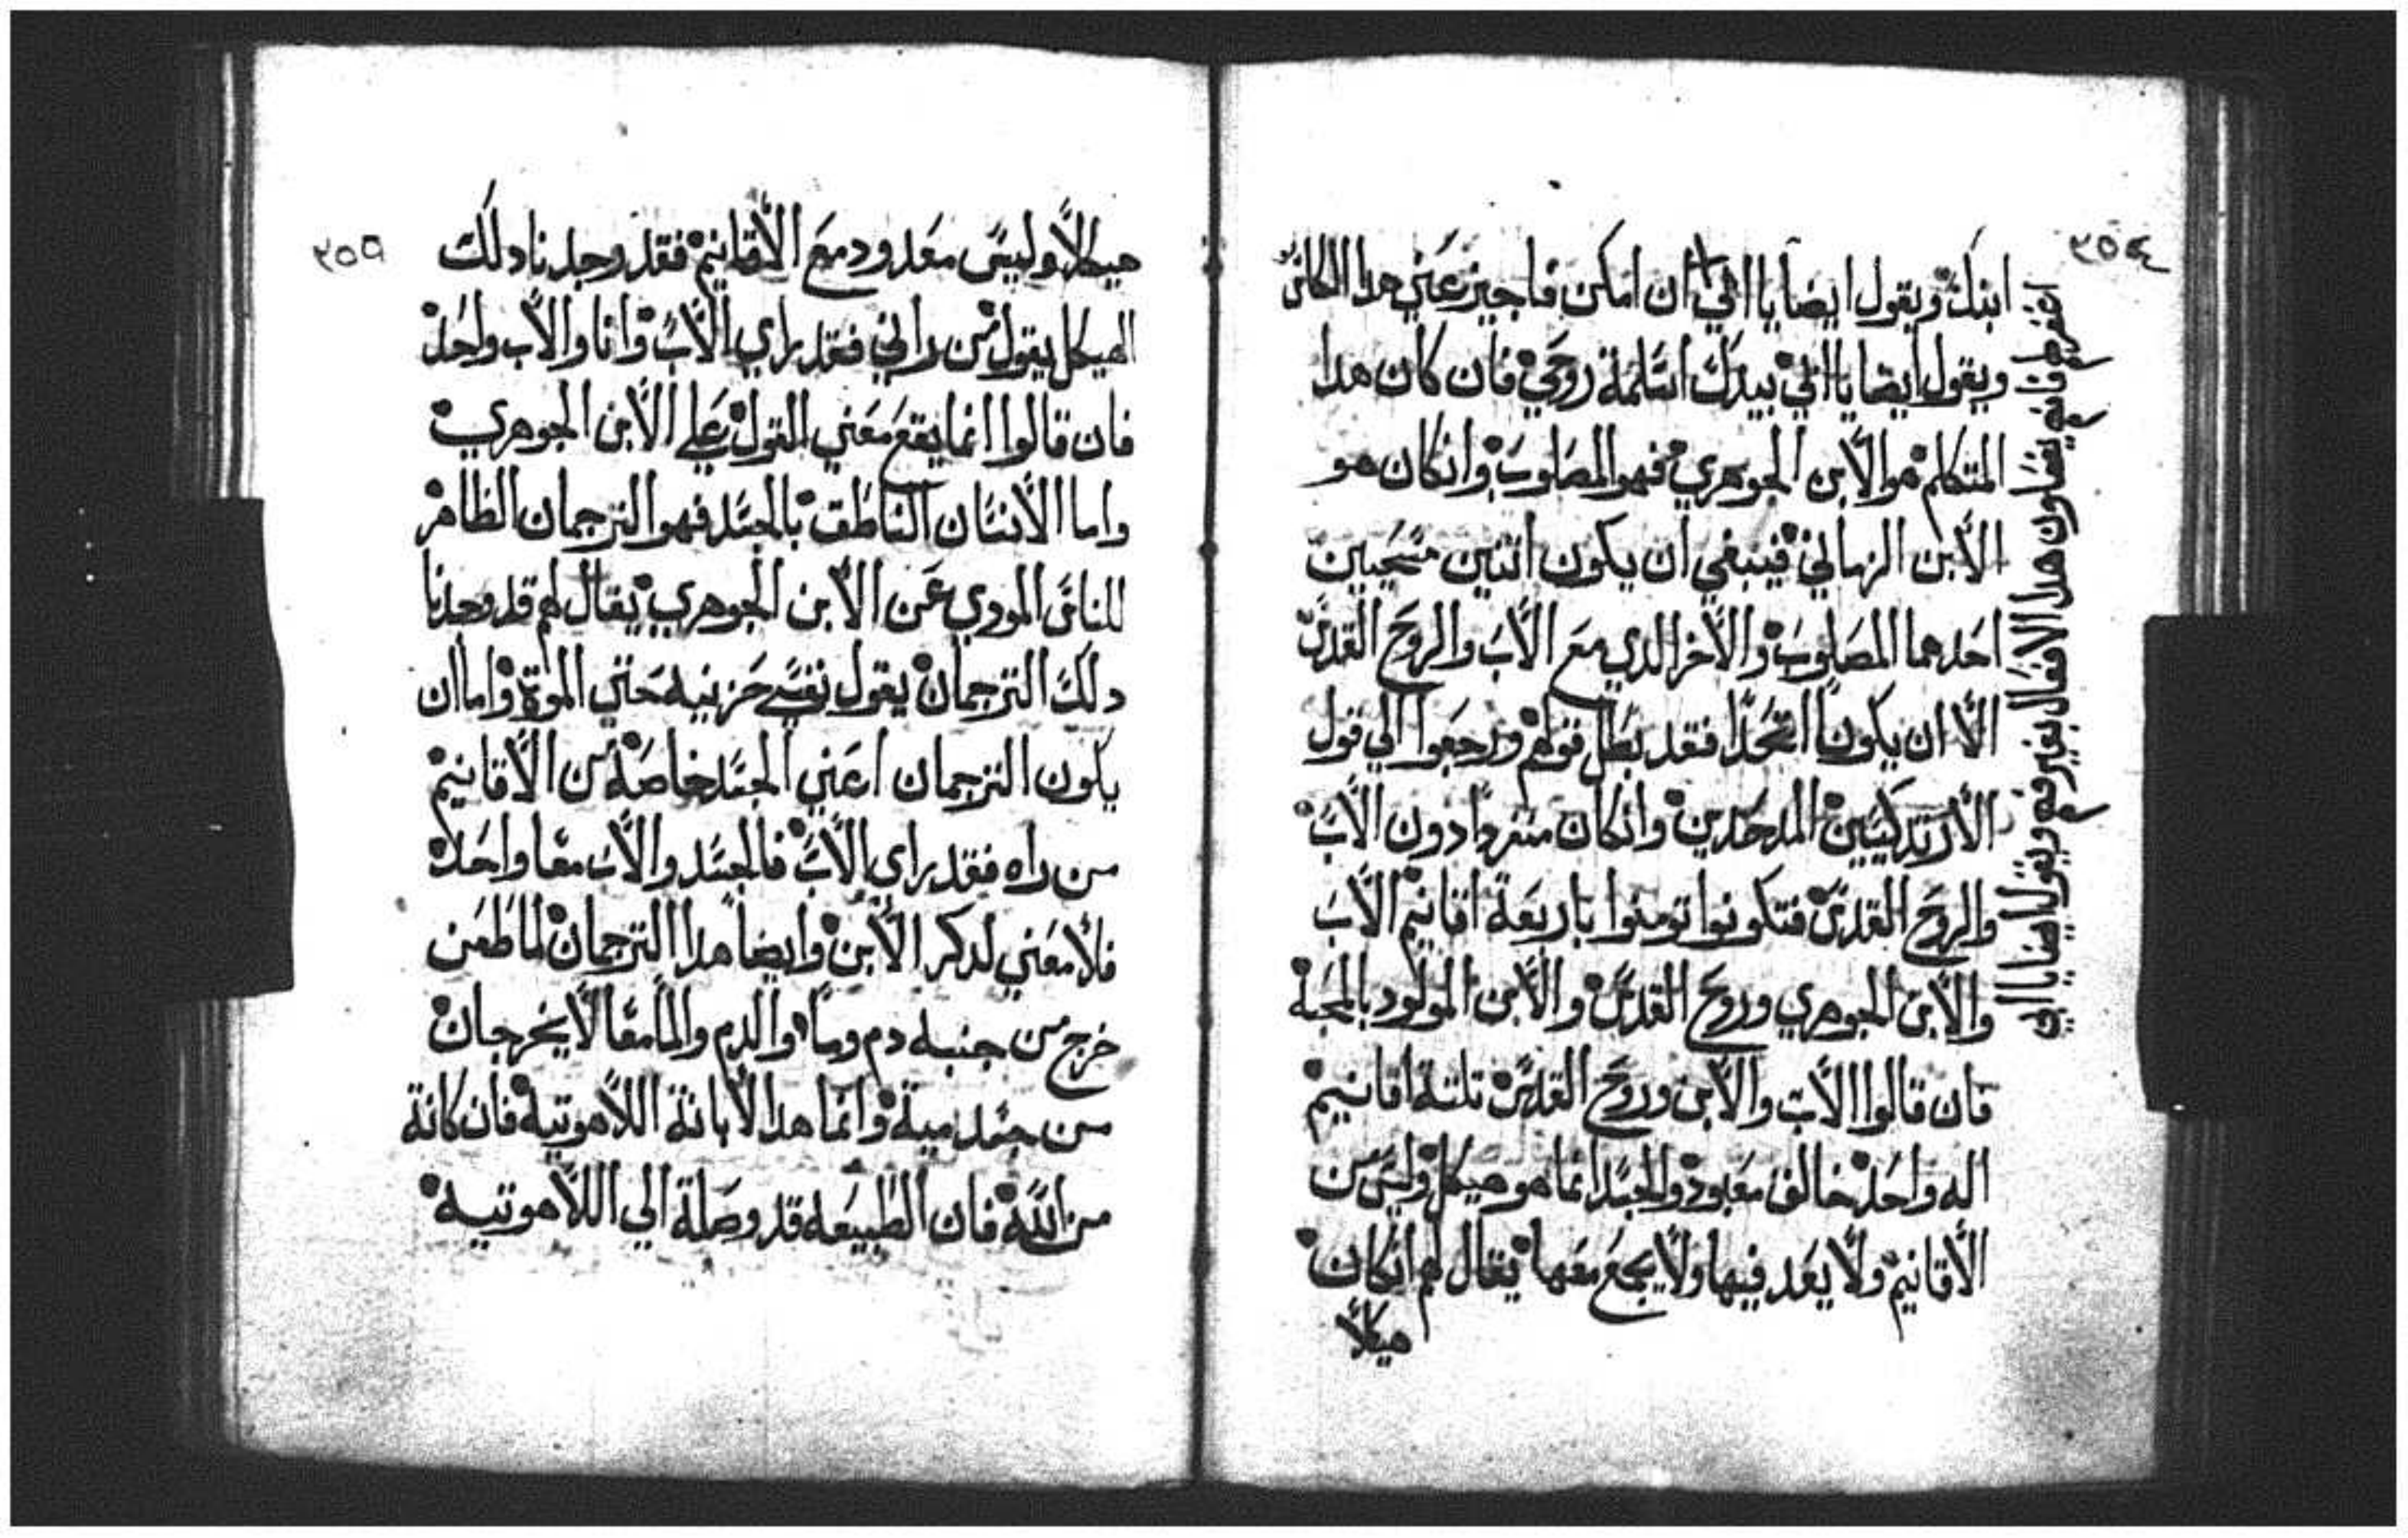 ٢٥٤
ابنك ويقول ايضا يا ابي ان امكن فاجيز عني هدا الكاس
ويقول ايضا يا ابي بيدك اسلمة روحي فان كان هدا
المتكلم هو الابن الجوهري فهو المصلوب وانكان هو
الابن الزماني فينبغي ان يكون اتنين مسيحيين
احدهما المصلوب والاخر الدي مع الاب والروح القدس
الا ان يكونا اتحدا فقد بطل قولهم ورجعوا الي قول
الارتدكسيين المدحدين وانكان منفردا دون الاب
والروح القدس فتكونوا تومنوا باربعة اقانيم الاب
والابن الجوهري وروح القدس والابن المولود بالمحبة
فان قالوا الاب والابن وروح القدس تلتة اقانيم
اله واحد خالق معبود والجسد انما هو هيكل وليس من
الاقانيم ولا يعد فيها ولا يجمع معها يقال لهم انكان
هيكلا
اغفر لهم فانهم يفعلون هدا الافعال بغير فهم ويقول ايضا يا ابي
٢٥٥
هيكلا وليس معدود مع الاقانيم فقد وجدنا دلك
الهيكل يقول من راني فقد راي الاب وانا والاب واحد
فان قالوا انما يقع معني القول علي الابن الجوهري
واما الانسان الناطق بالجسد فهو الترجمان الظاهر
للناس المودي عن الابن الجوهري يقال لهم قد وجدنا
دلك الترجمان يقول نفسي حزينيه حتي الموة واما ان
يكون الترجمان اعني الجسد خاصة من الاقانيم
من راه فقد راي الاب فالجسد والاب معا واحدا
فلا معني لدكر الابن وايضا هدا الترجمان لما طعن
خرج من جنبه دم وما والدم والما معا لا يخرجان
من جسد مية وانما هدا لابانة اللاهوتيه فان كانة
من الله فان الطبيعه قد وصلة الي اللاهوتيه